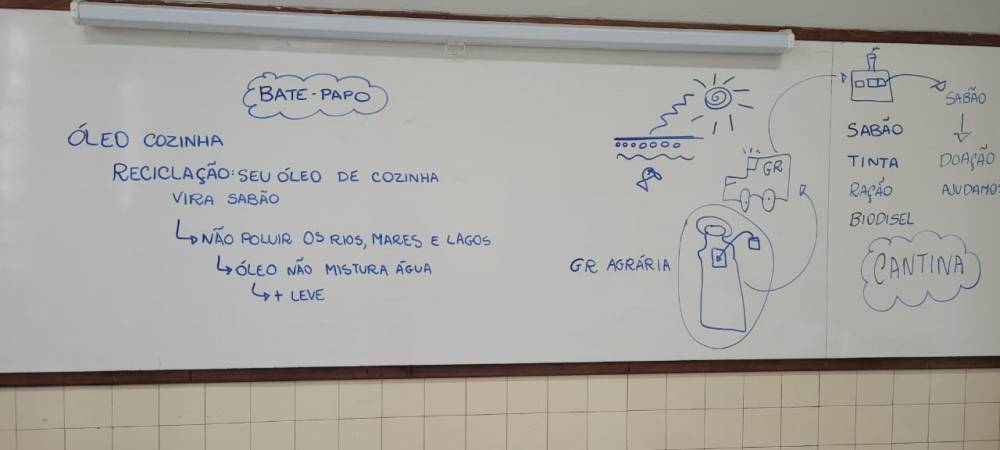 BATE-PAPO
ÓLEO COZINHA
RECICLAÇÃO: SEU ÓLEO DE COZINHA
VIRA SABÃO
NÃO POLUIR OS RIOS, MARES E LAGOS
ÓLEO NÃO MISTURA ÁGUA
+ LEVE
GR
GR AGRÁRIA
SABÃO
TINTA
RAÇÃO
BIODISEL
SABÃO
DOAÇÃO
AJUDAMOS
CANTINA